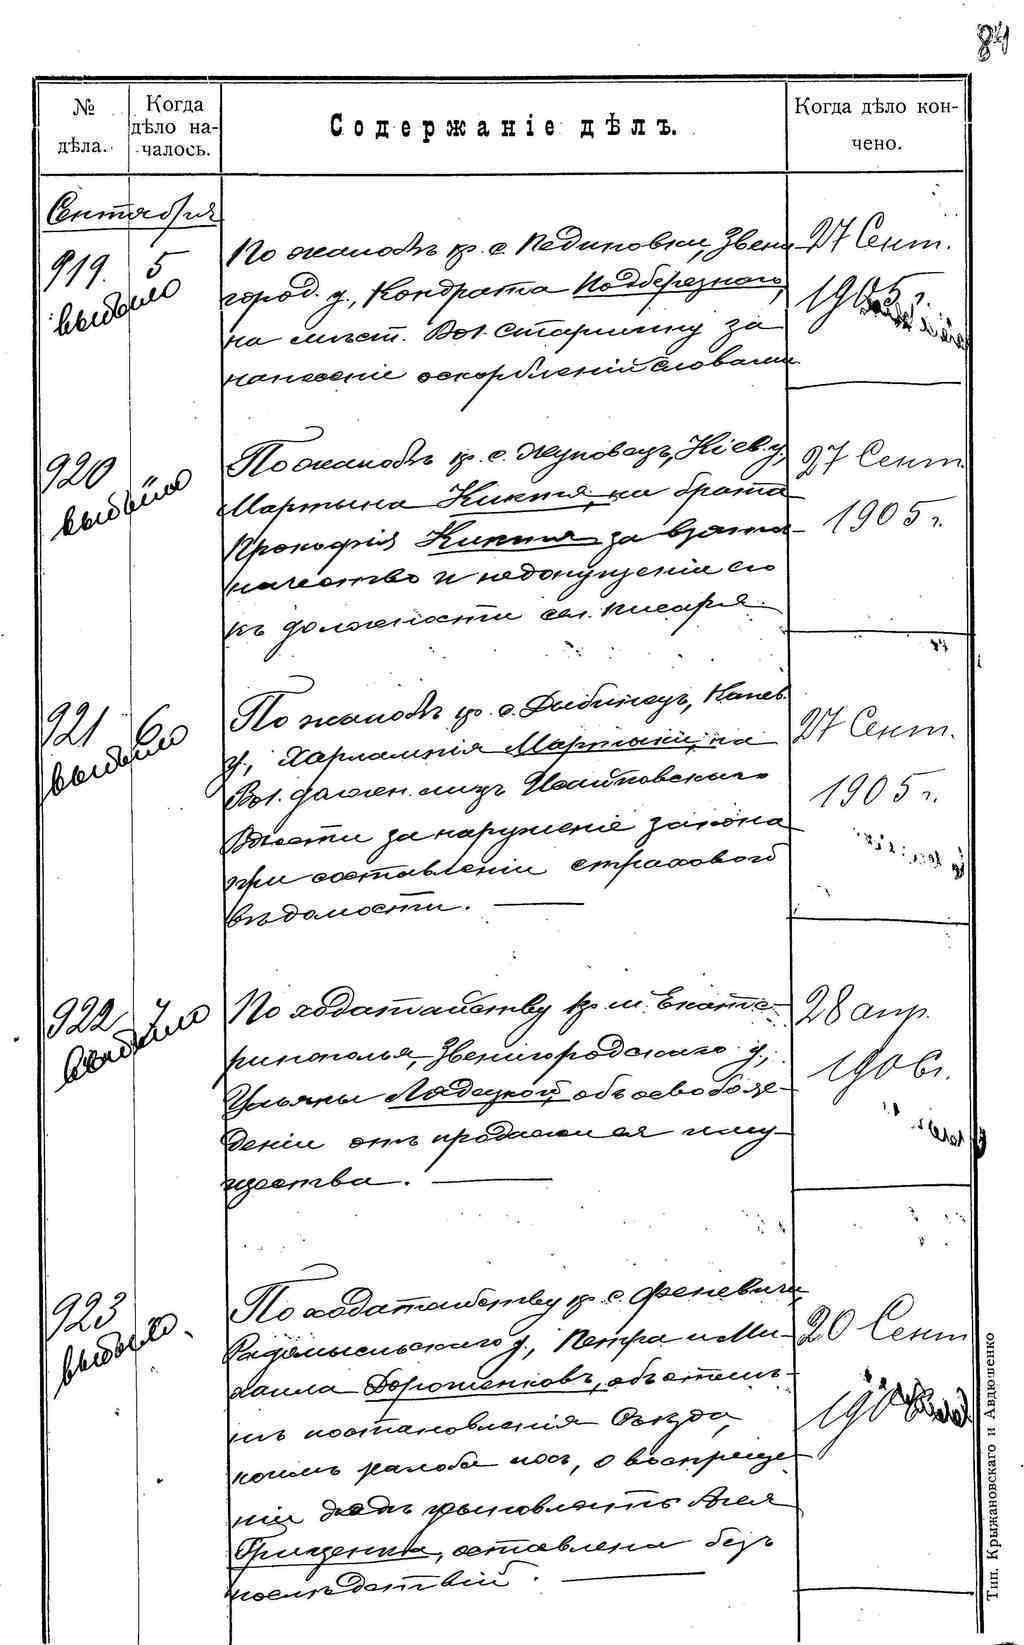 84
№ дѣла.
Когда дѣло на-
чалось.
Содержаніе дѣлъ.
Когда дѣло кон-
чено.
Сентября
919. 5
выбыло
По жалобѣ кр. с. Пединовки, Звени
город. у., Кондрата Подберезнаго,
на мѣст. Вол. Старшину за
нанесеніе оскорбленій словами
27 Сент.
1905 г.
920
выбыло
По жалобѣ кр. с. Жуковецъ, Кіев. у,
Мартына Киктя, на брата
Прокофія Киктя за взяточ-
ничество и недопущеніе его
къ должности сел. писаря.
27 Сент.
1905 г.
921 6
выбыло
По жалобѣ кр. с. Дыбинецъ, Канев.
у., Харлампія Мартыки, на
Вол. должн. лицъ
Волости за нарушеніе закона
при составленіи страховой
вѣдомости.
27 Сент.
1905 г.
922 7
выбыло
По ходатайству кр. м. Екате-
ринополья, Звенигородскаго у.,
Ульяны Лядецкой, объ освобож-
деніи отъ продажи ея иму-
щества.
28 апр.
1906 г.
923
выбыло
По ходатайству кр. с. Феневичи,
Радомысльскаго у., Петра и Ми-
хаила Дорошенковъ, объ отмѣ-
нѣ постановленія Съѣзда,
коимъ жалоба ихъ, о воспреще-
ніи усыновлять
Грищенка, оставлена безъ
послѣдствій.
20 Сент
Тип. Крыжановскаго и Авдюшенко